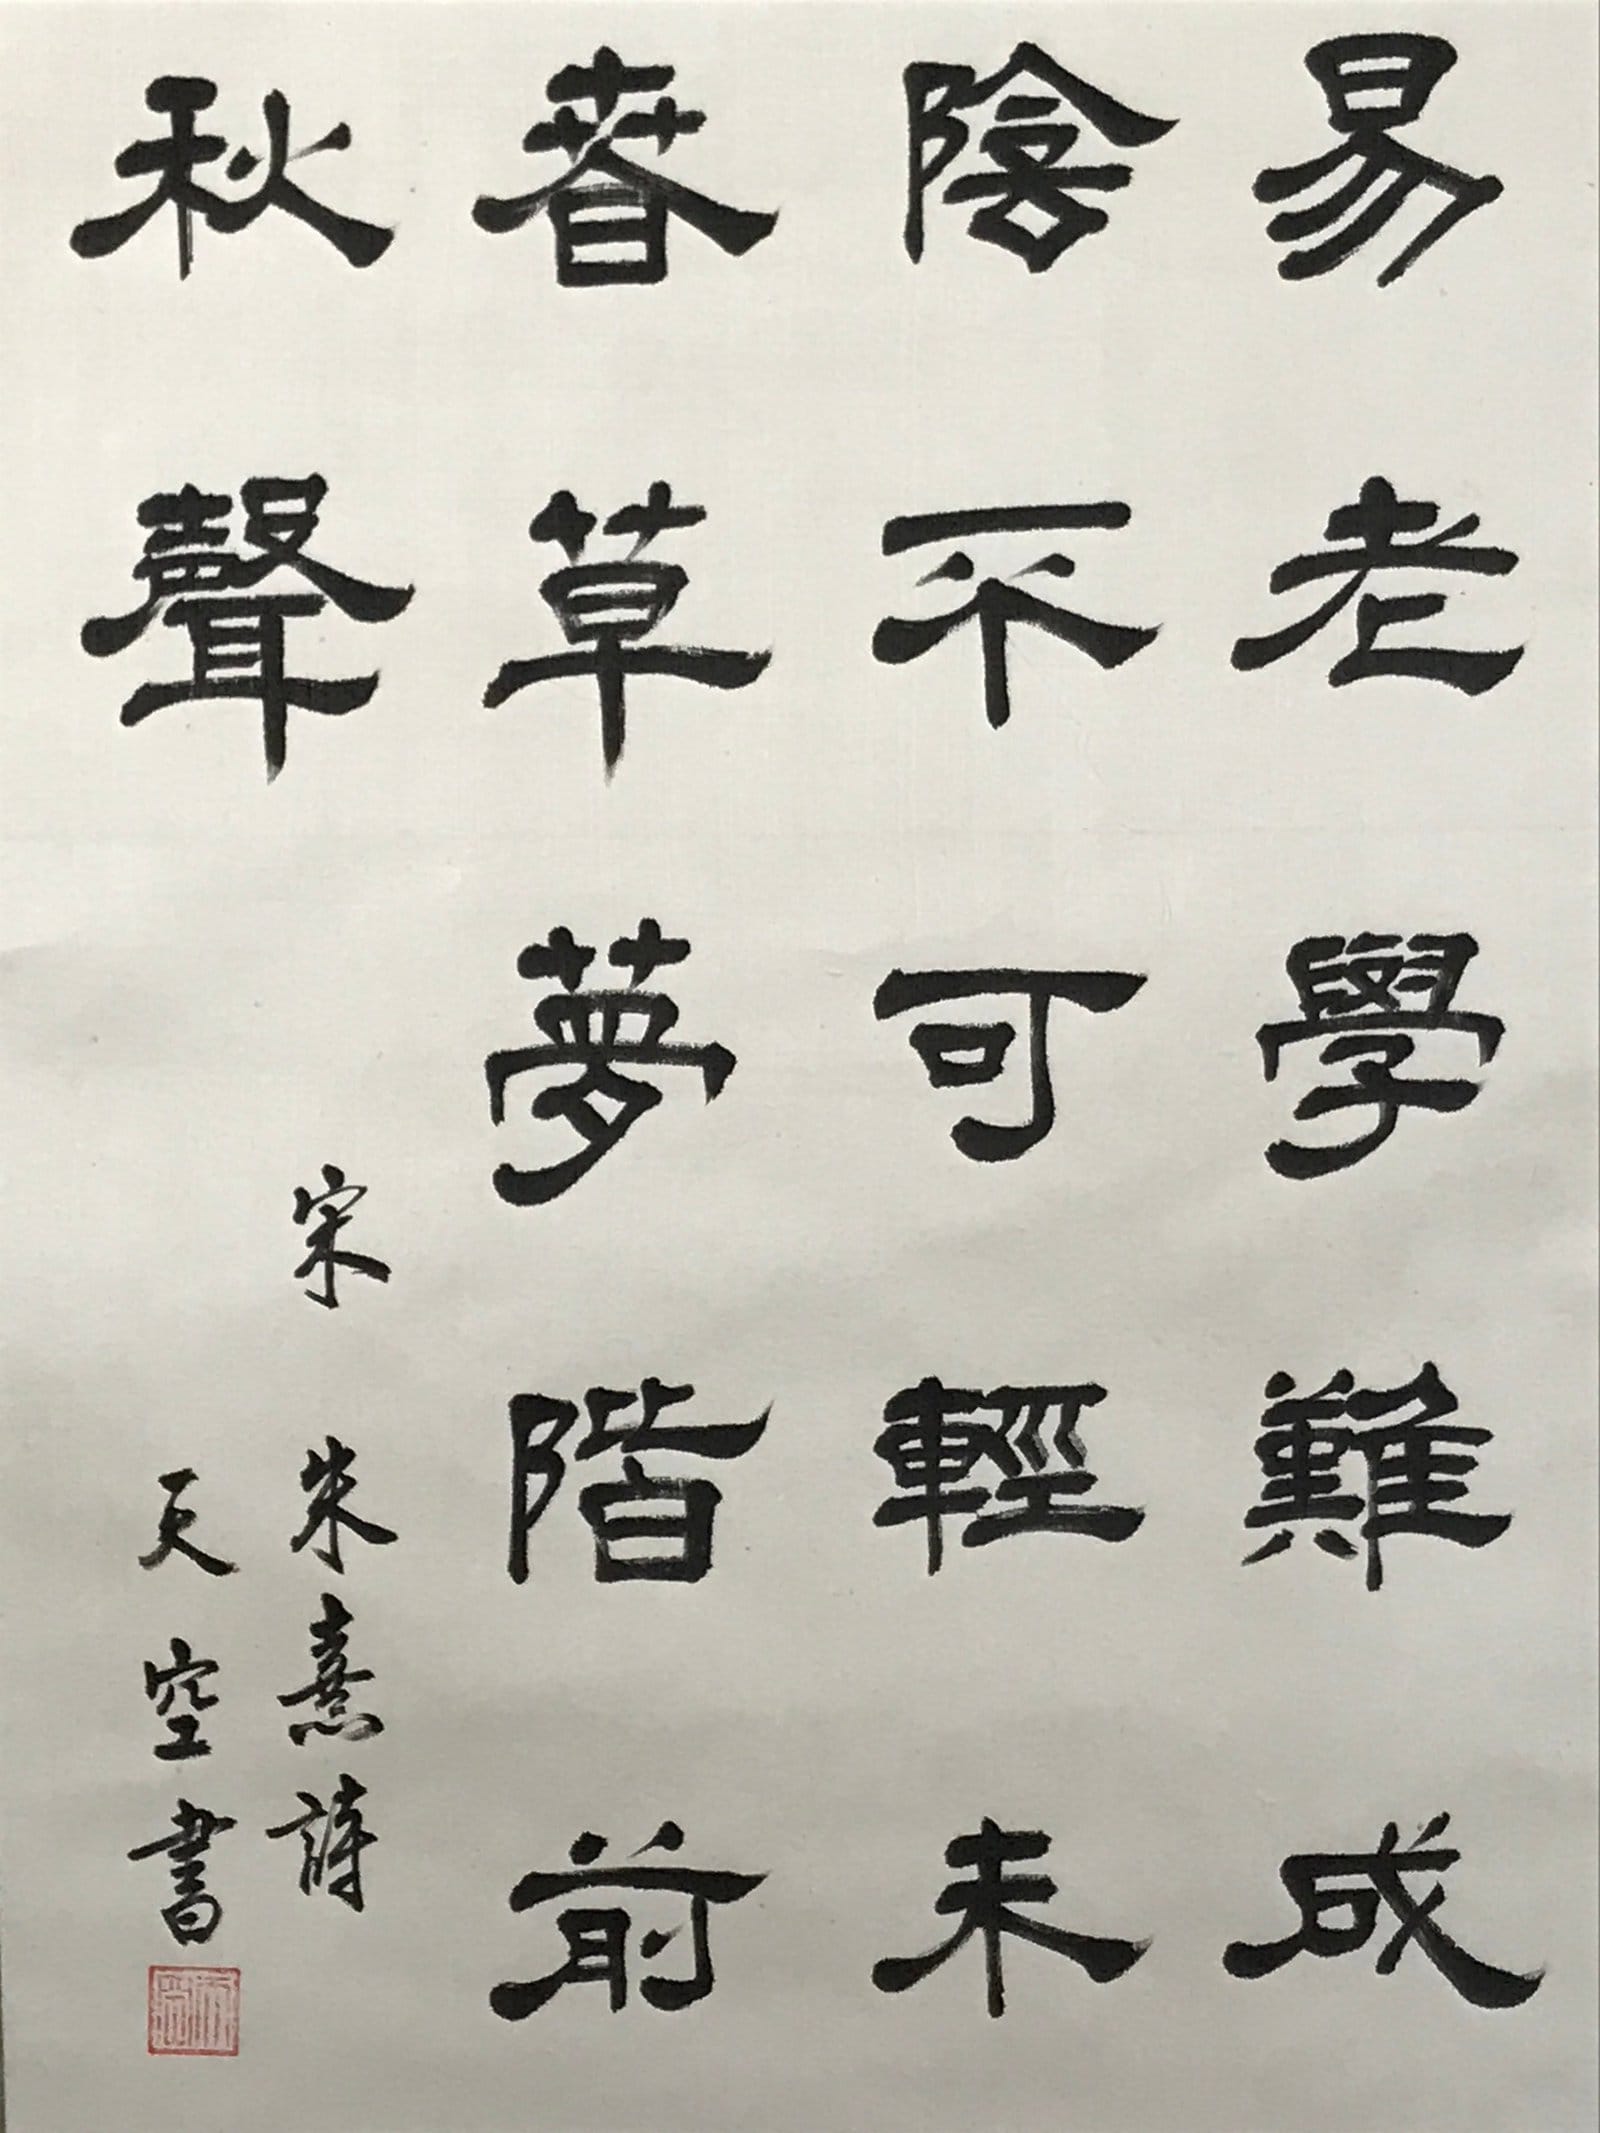 易老學難成
陰不可輕未
春草夢階前
秋聲
宋朱熹詩
天空書
天空